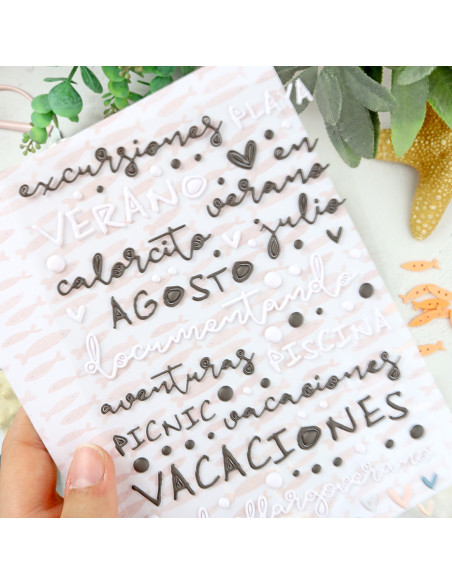 excursiones PLAYA
VERANO en verano
calorcito julio
AGOSTO
documentando
PISCINA
aventuras
PICNIC vacaciones
VACACIONES